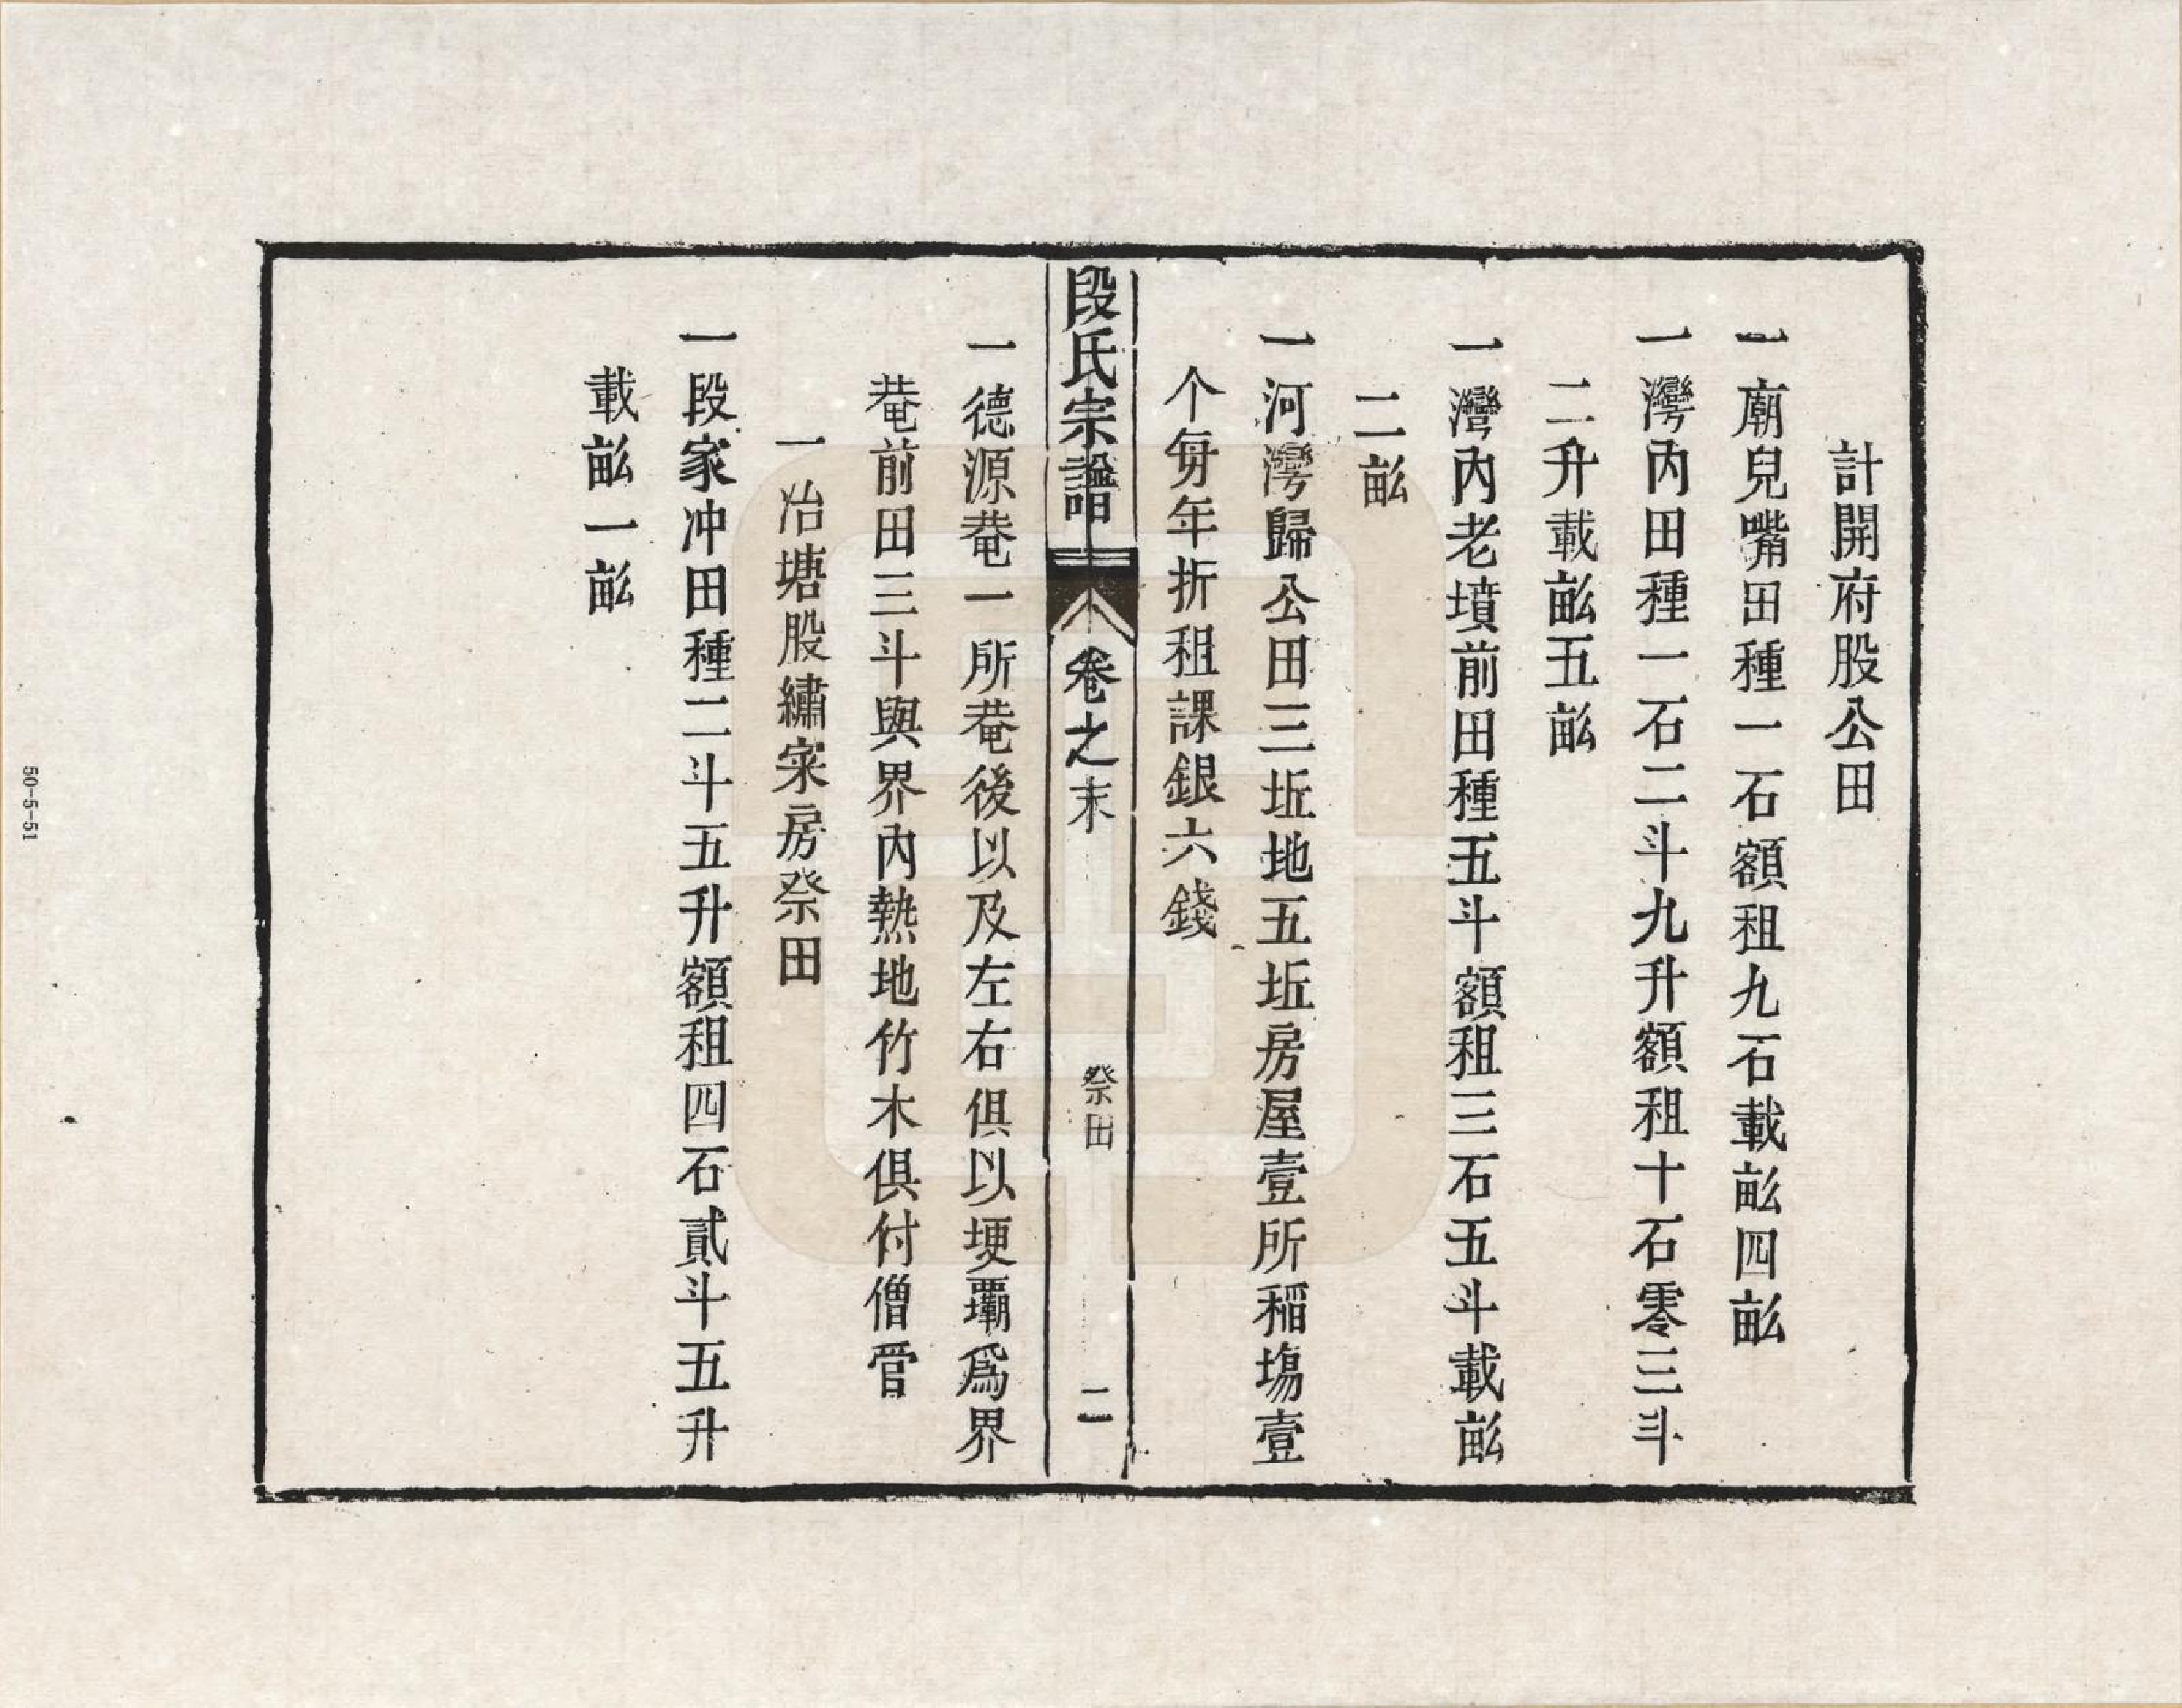 計開府股公田
一廟兒嘴田種一石額租九石載畝四畝
一灣內田種一石二斗九升額租十石零三斗
二升載畝五畝
一灣內老墳前田種五斗額租三石五斗載畝
二畝
一河灣歸公田三坵地五坵房屋壹所稻塲壹
个每年折租課銀六錢
段氏宗譜
卷之末
祭田
二
一德源菴一所菴後以及左右俱以埂壩爲界
菴前田三斗與界內熱地竹木俱付僧管
一冶塘股繡寀房祭田
一段家冲田種二斗五升額租四石貳斗五升
載畝一畝
50-5-51